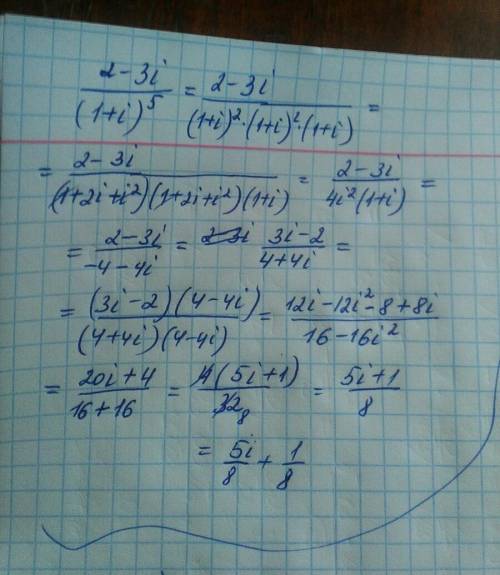 (2-3i)/(1+i)^5 = (2-3i)/((1+i)^2·(1+i)^2·(1+i)) =
= (2-3i)/((1+2i+i^2)(1+2i+i^2)(1+i)) = (2-3i)/(4i^2(1+i)) =
= (2-3i)/(-4-4i) = 2-3i (3i-2)/(4+4i) =
= ((3i-2)(4-4i))/((4+4i)(4-4i)) = (12i-12i^2-8+8i)/(16-16i^2)
= (20i+4)/(16+16) = (4(5i+1))/(32 8) = (5i+1)/8
= 5i/8 + 1/8